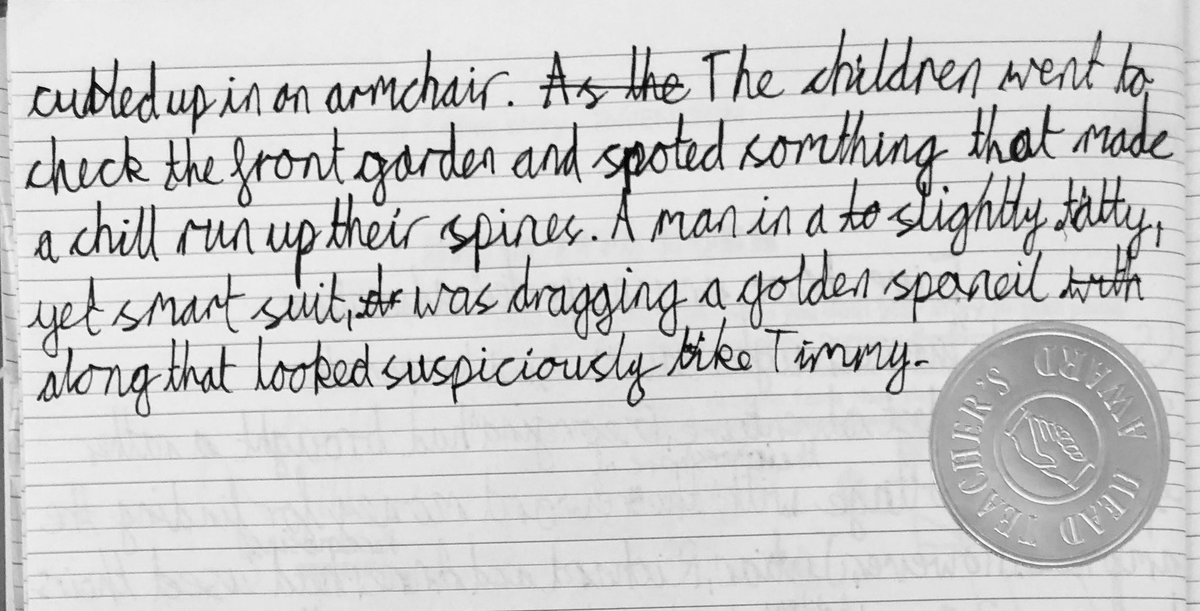 cubled up in an armchair. As the The children went to
check the front garden and spoted somthing that made
a chill run up their spines. A man in a to slightly tatty,
yet smart suit, was dragging a golden spaneil with
along that looked suspiciously like Timmy.
HEAD TEACHER'S AWARD